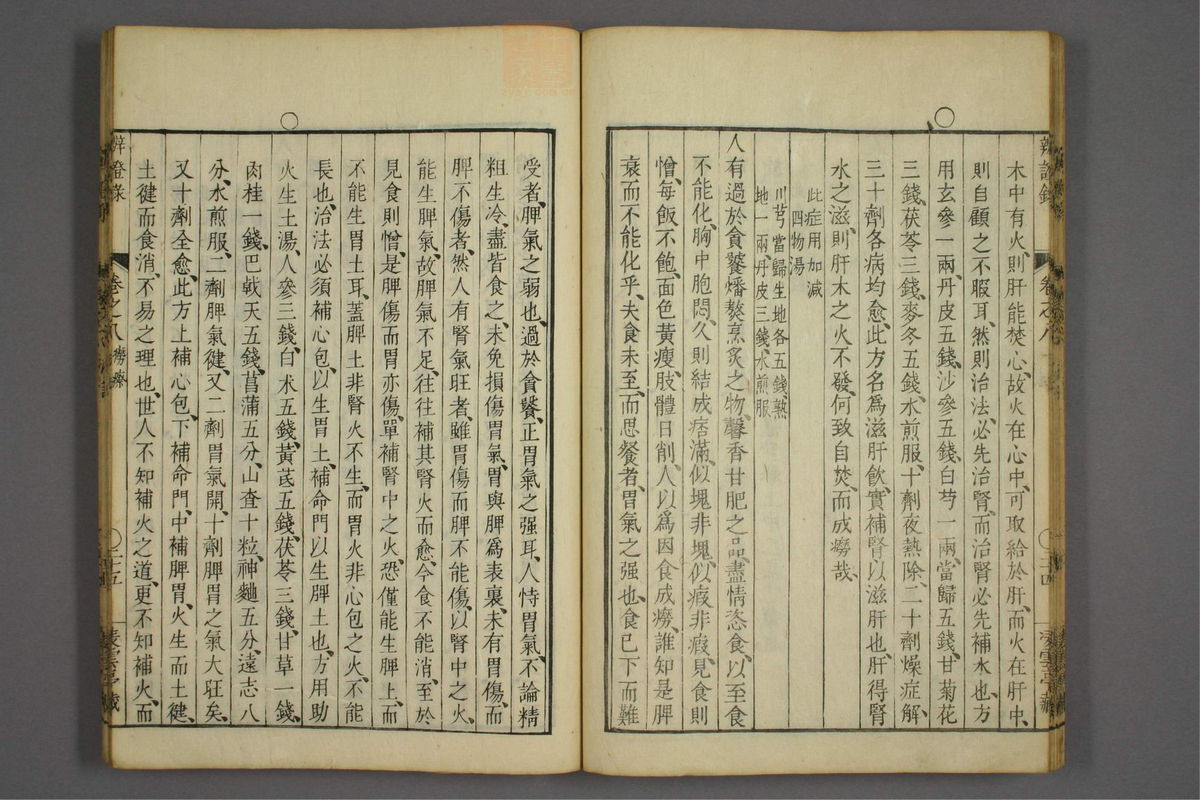 辨證錄 卷之八
木中有火、則肝能焚心、故火在心中、可取給於肝、而火在肝中、
則自顧之不暇耳、然則治法、必先治腎、而治腎必先補水也、方
用玄參一兩、丹皮五錢、沙參五錢、白芍一兩、當歸五錢、甘菊花
三錢、茯苓三錢、麥冬五錢、水煎服、十劑夜熱除、二十劑燥症解、
三十劑各病均愈、此方名爲滋肝飮、實補腎以滋肝也、肝得腎
水之滋、則肝木之火不發、何致自焚、而成癆哉、
此症用加減
四物湯
川芎當歸生地各五錢、熟
地一兩、丹皮三錢、水煎服
人有過於貪饕、燔熬烹炙之物、馨香甘肥之品、盡情恣食、以至食
不能化、胸中胞悶、久則結成痞滿、似塊非塊、似瘕非瘕、見食則
憎、每飯不飽、面色黃瘦、肢體日削、人以爲因食成癆、誰知是脾
衰而不能化乎、夫食未至、而思餐者、胃氣之强也、食已下而難
受者、脾氣之弱也、過於貪饕、正胃氣之强耳、人恃胃氣、不論精
粗生冷、盡皆食之、未免損傷胃氣、胃與脾爲表裏、未有胃傷、而
脾不傷者、然人有腎氣旺者、雖胃傷而脾不能傷、以腎中之火、
能生脾氣、故脾氣不足、往往補其腎火而愈、今食不能消、至於
見食則憎、是脾傷而胃亦傷、單補腎中之火、恐僅能生脾土、而
不能生胃土耳、蓋脾土非腎火不生、而胃火非心包之火、不能
長也、治法必須補心包、以生胃土、補命門以生脾土也、方用助
火生土湯、人參三錢、白朮五錢、黃芪五錢、茯苓三錢、甘草一錢、
肉桂一錢、巴戟天五錢、菖蒲五分、山査十粒、神麯五分、遠志八
分、水煎服、二劑脾氣健、又二劑胃氣開、十劑脾胃之氣大旺矣、
又十劑全愈、此方上補心包、下補命門、中補脾胃、火生而土健、
土健而食消、不易之理也、世人不知補火之道、更不知補火、而
辨證錄 卷之八 癆瘵 二十五